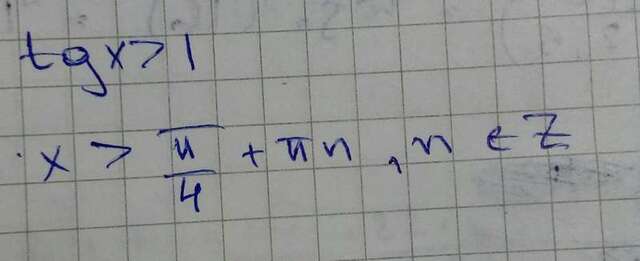 tgx>1
x > π/4 + πn, n ∈ Z